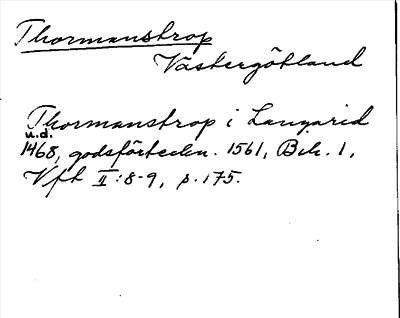 Thormanstrop
Västergötland
Thormanstrop i Langarid
u.d.
1468, godsförteckn. 1561, Bih. 1,
Vft II:8-9, p. 175.